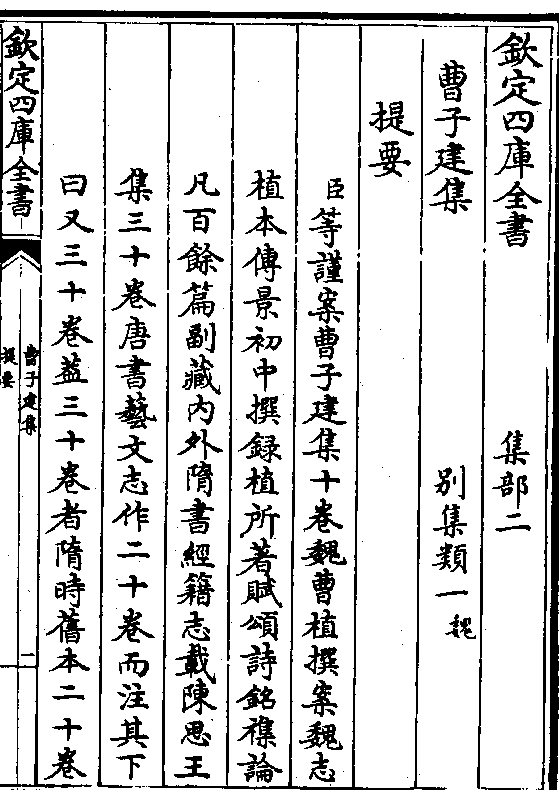 欽定四庫全書　集部二
曹子建集　別集類一魏
提要
臣等謹案曹子建集十卷魏曹植撰案魏志
植本傳景初中撰録植所著賦頌詩銘襍論
凡百餘篇副藏內外隋書經籍志載陳思王
集三十卷唐書藝文志作二十卷而注其下
曰又三十卷葢三十卷者隋時舊本二十卷
欽定四庫全書
曹子建集
提要
一